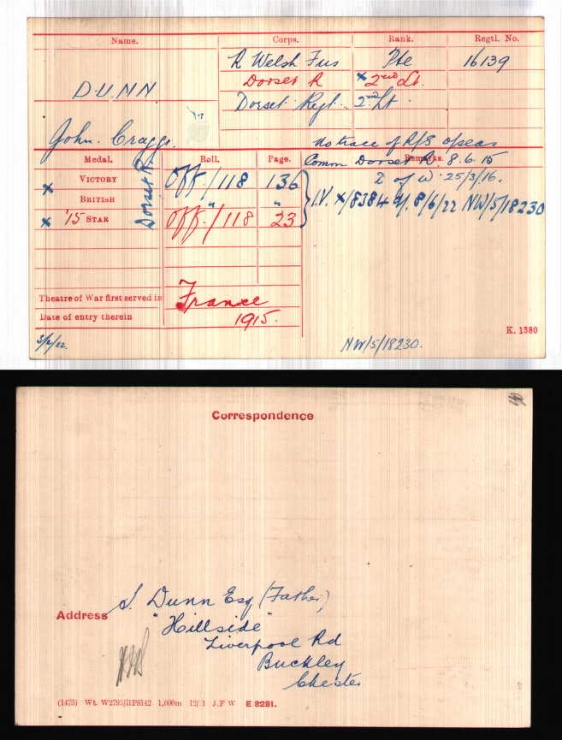 Name. Corps. Rank. Regtl. No.
R Welsh Fus Pte 16139
Dorset R × 2nd Lt.
DUNN Dorset Regt. 2nd Lt
John. Craggs. No trace of R/S opeas
Medal. Roll. Page. Remarks.
Comm Dorset R. 8.6.15
× Victory Off./118 136 D of W 25/3/16.
British " " I.V. ×/8384 8/6/22 NW/5/18230
× '15 Star Off./118 23
Dorset R
Theatre of War first served in France
Date of entry therein 1915.
K. 1380
NW/5/18230.
Correspondence
Address S. Dunn Esq (Father)
"Hillside"
Liverpool Rd
Buckley
Chester
(1473) Wt. 1,000m J.F W E 8281.